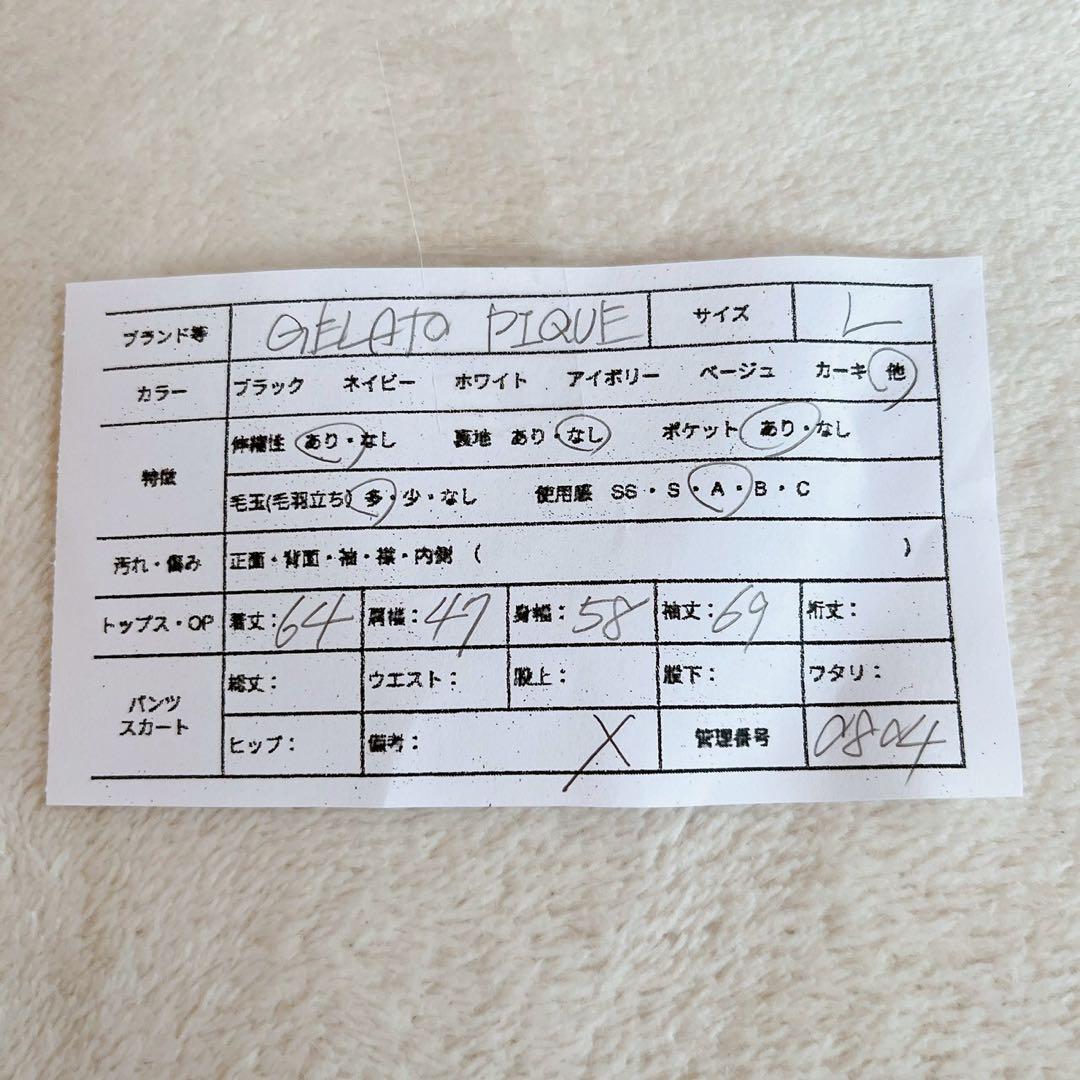 ブランド等 GELATO PIQUE サイズ L
カラー ブラック ネイビー ホワイト アイボリー ベージュ カーキ 他
特徴
伸縮性 あり・なし 裏地 あり・なし ポケット あり・なし
毛玉(毛羽立ち) 多・少・なし 使用感 SS・S・A・B・C
汚れ・傷み 正面・背面・袖・襟・内側 ( )
トップス・OP 着丈:64 肩幅:47 身幅:58 袖丈:69 裄丈:
パンツ
スカート
総丈: ウエスト: 股上: 股下: ワタリ:
ヒップ: 備考: X 管理番号 0804